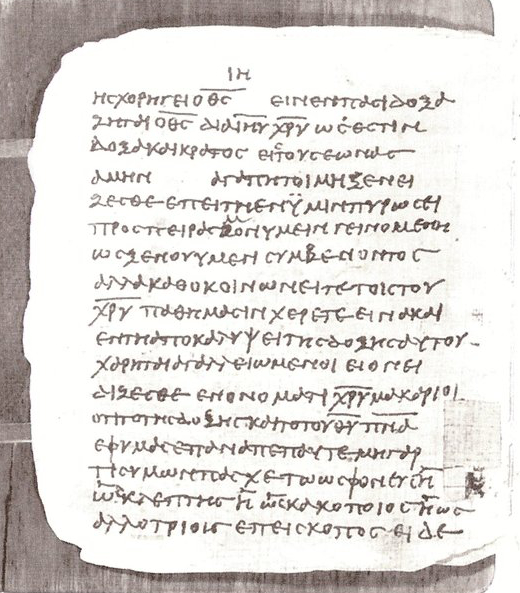 ΙΗ
ηςχορηγειο̅θ̅ς̅ εινενπαςιδοξα
ζηται ο̅θ̅ς̅ δια ι̅η̅υ̅ χ̅ρ̅υ̅ ωςεςτιν
δοξακαικρατος ειςτουςεωνας
αμην αγαπητοιμηξενει
ζεςθε επειτηενϋμινπυρωςει
προςπειραςμονυμειν γεινομενη
ωςξενουυμειν ςυμβενοντος
αλλακαθοκοινωνειτετοιςτου
χ̅ρ̅υ̅ παθημαςιν χερετε εινακαι
εντηαποκαλυψειτηςδοξηςαυτου
χαρηταιαγαλλειωμενοι ειονει
διζεςθε ενονοματι χ̅ρ̅υ̅μακαριοι
οτιτοτηςδοξηςκαιτοτουθ̅υ̅ π̅ν̅α̅
εφυμαςεπαναπεπαυτεμηγαρ
τιςυμωνπαςχετωωςφονευςη
ωςκλεπτης η ωςκακοποιοςηως
αλλοτριοις επειςκοπος ειδε